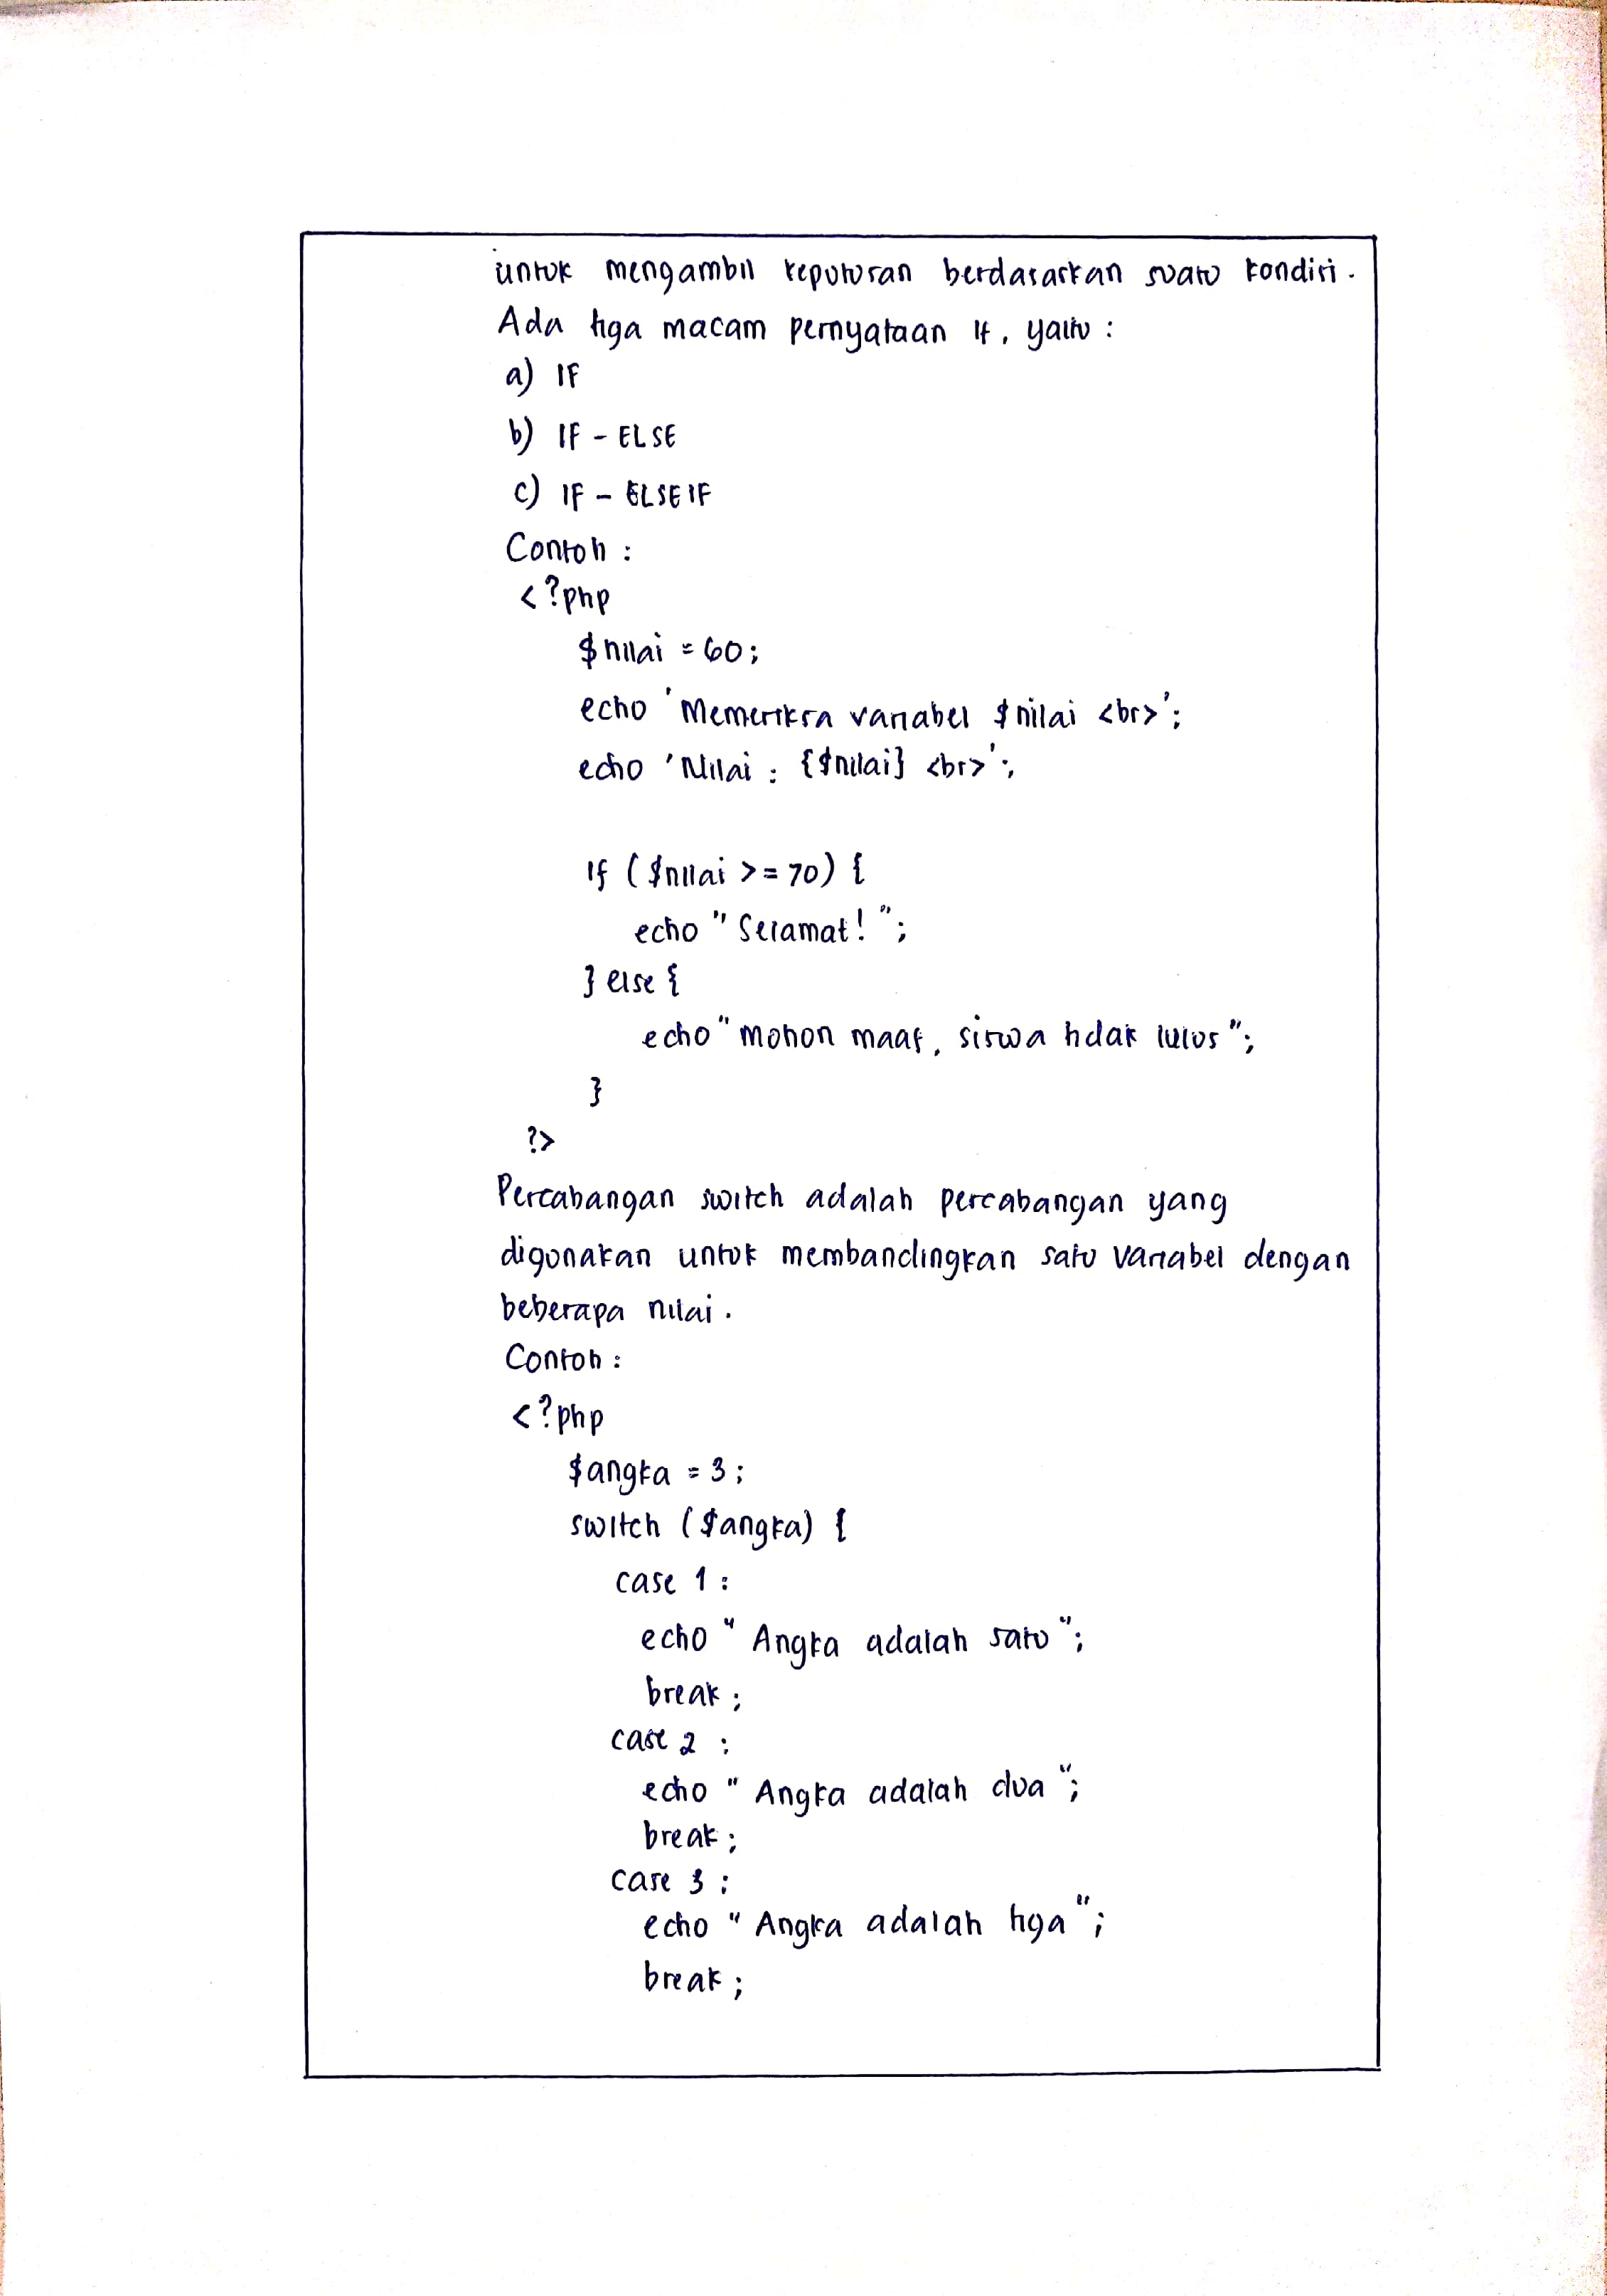 untuk mengambil keputusan berdasarkan suatu kondisi.
Ada tiga macam pernyataan if, yaitu :
a) IF
b) IF - ELSE
c) IF - ELSE IF
Contoh :
<?php
$nilai = 60;
echo 'Memeriksa variabel $nilai <br>';
echo 'Nilai : {$nilai} <br>';
If ($nilai >= 70) {
echo "Selamat! ";
} else {
echo "mohon maaf, siswa tidak lulus";
}
?>
Percabangan switch adalah percabangan yang
digunakan untuk membandingkan satu variabel dengan
beberapa nilai.
Contoh :
<?php
$angka = 3;
switch ($angka) {
case 1 :
echo " Angka adalah satu ";
break;
case 2 :
echo " Angka adalah dua ";
break;
case 3 :
echo " Angka adalah tiga ";
break;